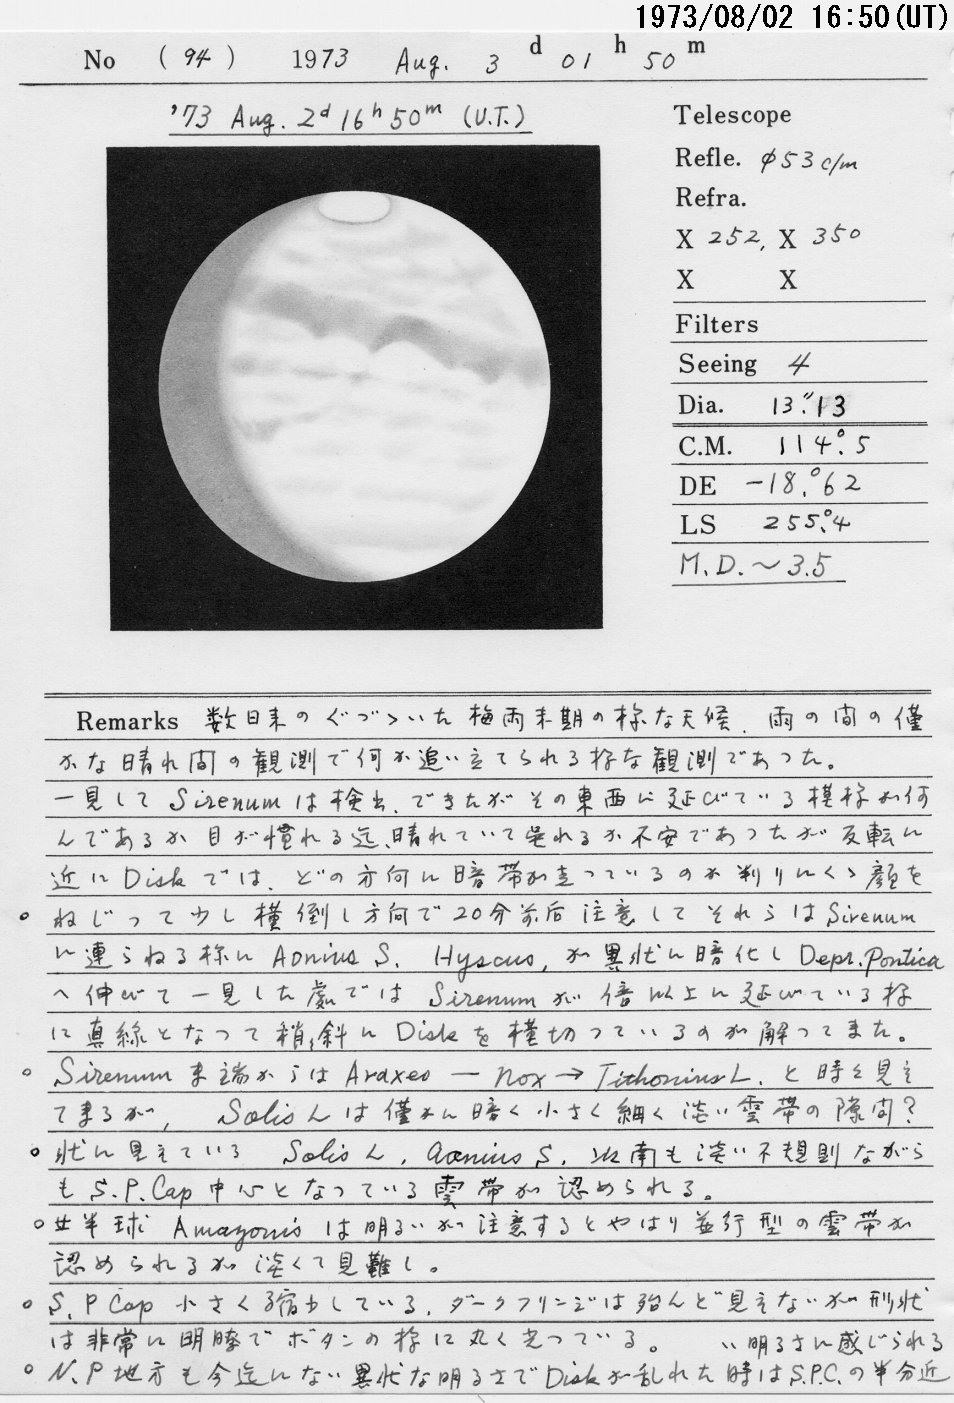 1973/08/02 16:50(UT)
No (94) 1973 Aug. 3 d 01 h 50 m
'73 Aug. 2d 16h 50m (U.T.)
Telescope
Refle. φ53 c/m
Refra.
X 252, X 350
X X
Filters
Seeing 4
Dia. 13."13
C.M. 114°.5
DE -18.°62
LS 255.°4
M.D. ~3.5
Remarks 数日来のぐづついた梅雨末期の様な天候、雨の間の僅
かな晴れ間の観測で何か追い立てられる様な観測であった。
一見して Sirenum は検出、できたがその東西に延びている模様が何
んであるか目が慣れる迄、晴れていて呉れるか不安であったが反転に
近に Disk では、どの方向に暗帯が走っているのか判りにくく顔を
ねじって少し横倒し方向で20分前后注意してそれらは Sirenum
に連らねる様に Aonius S. Hyscus, が異状に暗化し Depr. Pontica
へ伸びて一見した処では Sirenum が倍以上に延びている様
に真線となって稍、斜に Disk を横切っているのが解ってまた。
Sirenum 東端からは Araxes — Nox → Tithonius L. と時々見え
てまるが, Solis L は僅かに暗く小さく細く淡い雲帯の隙間?
状に見えている Solis L, Aonius S. 以南も淡い不規則ながら
も S.P.Cap 中心となっている雲帯が認められる。
北半球 Amazonis は明るいが注意するとやはり並行型の雲帯が
認められるが淡くて見難し。
S.P Cap 小さく縮少している、ダークフリンジは殆んど見えないが形状
は非常に明瞭でボタンの様に丸く光っている。 い明るさに感じられる
N.P 地方も今迄にない異状な明るさで Disk が乱れた時は S.P.C. の半分近